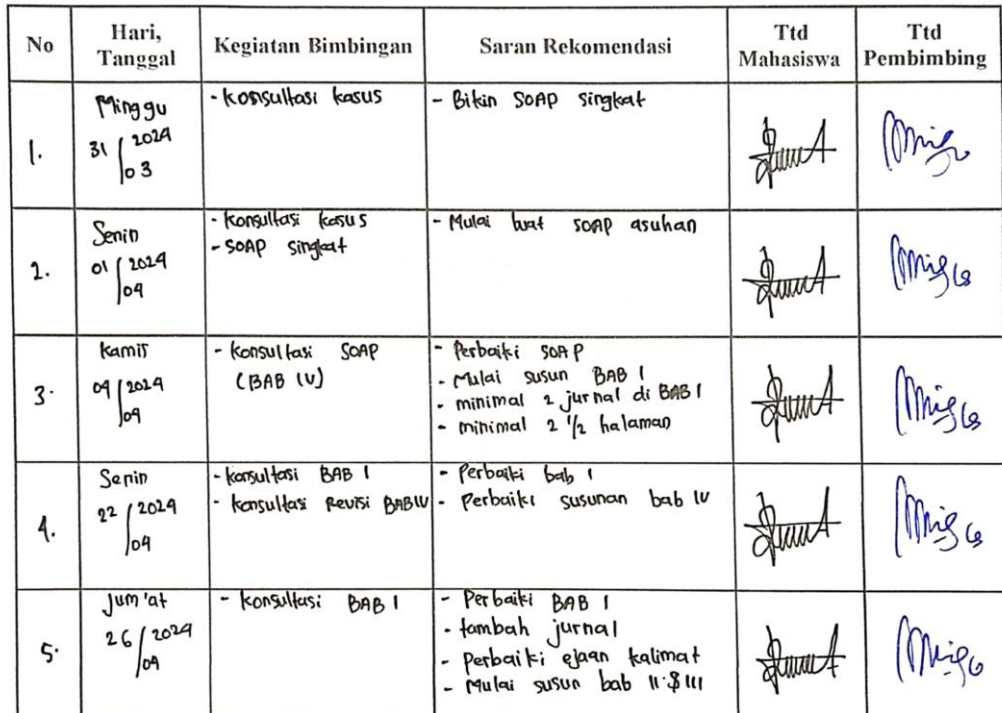 No
Hari,
Tanggal
Kegiatan Bimbingan
Saran Rekomendasi
Ttd
Mahasiswa
Ttd
Pembimbing
1.
Minggu
31/2024
03
- Konsultasi kasus
- Bikin SOAP singkat
2.
Senin
01/2024
04
- Konsultasi kasus
- SOAP singkat
- Mulai buat SOAP asuhan
3.
Kamis
04/2024
04
- Konsultasi SOAP
(BAB IV)
- Perbaiki SOAP
- Mulai susun BAB I
- minimal 2 jurnal di BAB I
- minimal 2 1/2 halaman
4.
Senin
22/2024
04
- Konsultasi BAB I
- Konsultasi Revisi BAB IV
- Perbaiki bab I
- Perbaiki susunan bab IV
5.
Jum'at
26/2024
04
- Konsultasi BAB I
- Perbaiki BAB I
- tambah jurnal
- Perbaiki ejaan kalimat
- Mulai susun bab II & III